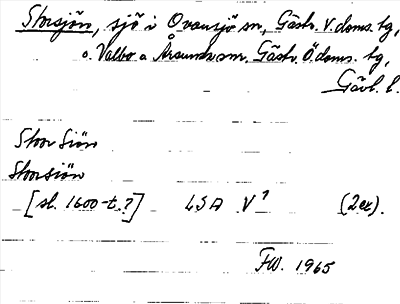 Storsjön, sjö i Ovansjö sn, Gästr. V. doms. tg,
o. Valbo o Årsunda snr, Gästr. Ö. doms. tg,
Gävl. l.
Stoor Siön
Storsiön
[sl. 1600-t.?] LSA V? (2 ex).
FW. 1965